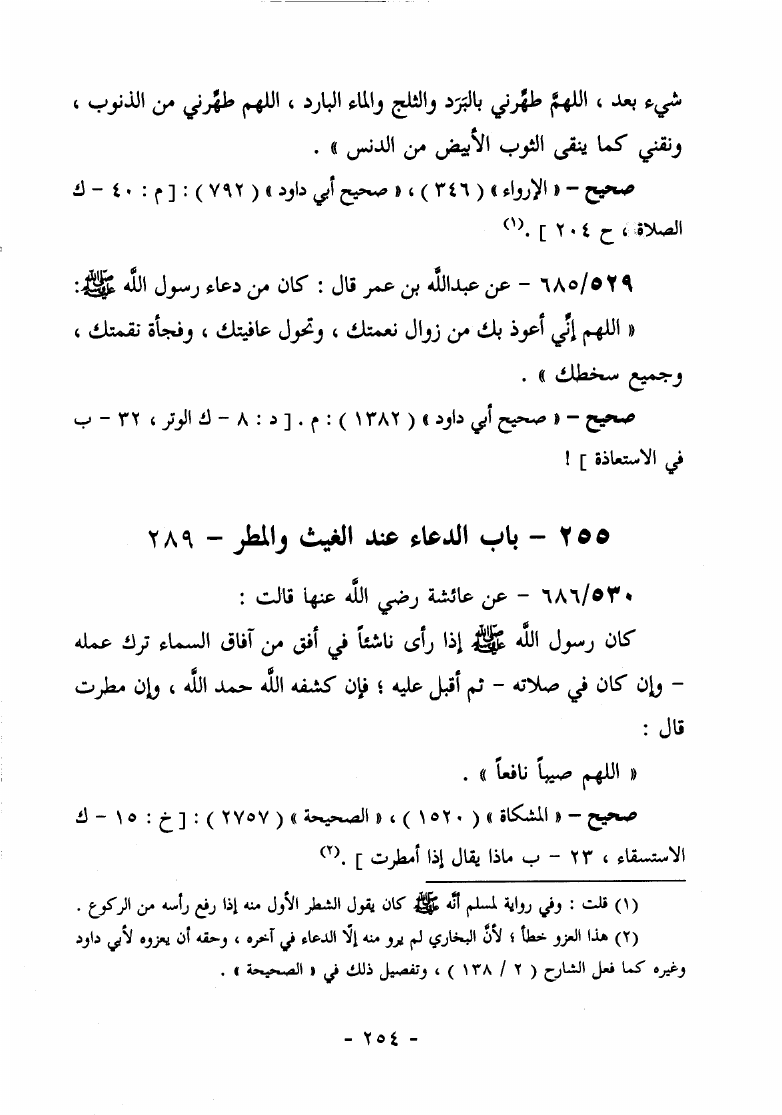 شيء بعد ، اللهمَّ طهِّرني بالبَرَد والثلج والماء البارد ، اللهم طهِّرني من الذنوب ،
ونقني كما ينقى الثوب الأبيض من الدنس » .
صحيح – « الإرواء » ( ٣٤٦ ) ، « صحيح أبي داود » ( ٧٩٢ ) : [ م : ٤٠ – ك
الصلاة ، ح ٢٠٤ ] .(١)
٦٨٥/٥٢٩ – عن عبدالله بن عمر قال : كان من دعاء رسول الله ﷺ:
« اللهم إنِّي أعوذ بك من زوال نعمتك ، وتحول عافيتك ، وفجأة نقمتك ،
وجميع سخطك » .
صحيح – « صحيح أبي داود » ( ١٣٨٢ ) : م . [ د : ٨ – ك الوتر ، ٣٢ – ب
في الاستعاذة ] !
٢٥٥ – باب الدعاء عند الغيث والمطر – ٢٨٩
٦٨٦/٥٣٠ – عن عائشة رضي الله عنها قالت :
كان رسول الله ﷺ إذا رأى ناشئاً في أفق من آفاق السماء ترك عمله
– وإن كان في صلاته – ثم أقبل عليه ؛ فإن كشفه الله حمد الله ، وإن مطرت
قال :
« اللهم صيباً نافعاً » .
صحيح – « المشكاة » ( ١٥٢٠ ) ، « الصحيحة » ( ٢٧٥٧ ) : [ خ : ١٥ – ك
الاستسقاء ، ٢٣ – ب ماذا يقال إذا أمطرت ] .(٢)
(١) قلت : وفي رواية لمسلم أنَّه ﷺ كان يقول الشطر الأول منه إذا رفع رأسه من الركوع .
(٢) هذا العزو خطأ ؛ لأنَّ البخاري لم يرو منه إلّا الدعاء في آخره ، وحقه أن يعزوه لأبي داود
وغيره كما فعل الشارح ( ٢ / ١٣٨ ) ، وتفصيل ذلك في « الصحيحة » .
- ٢٥٤ -